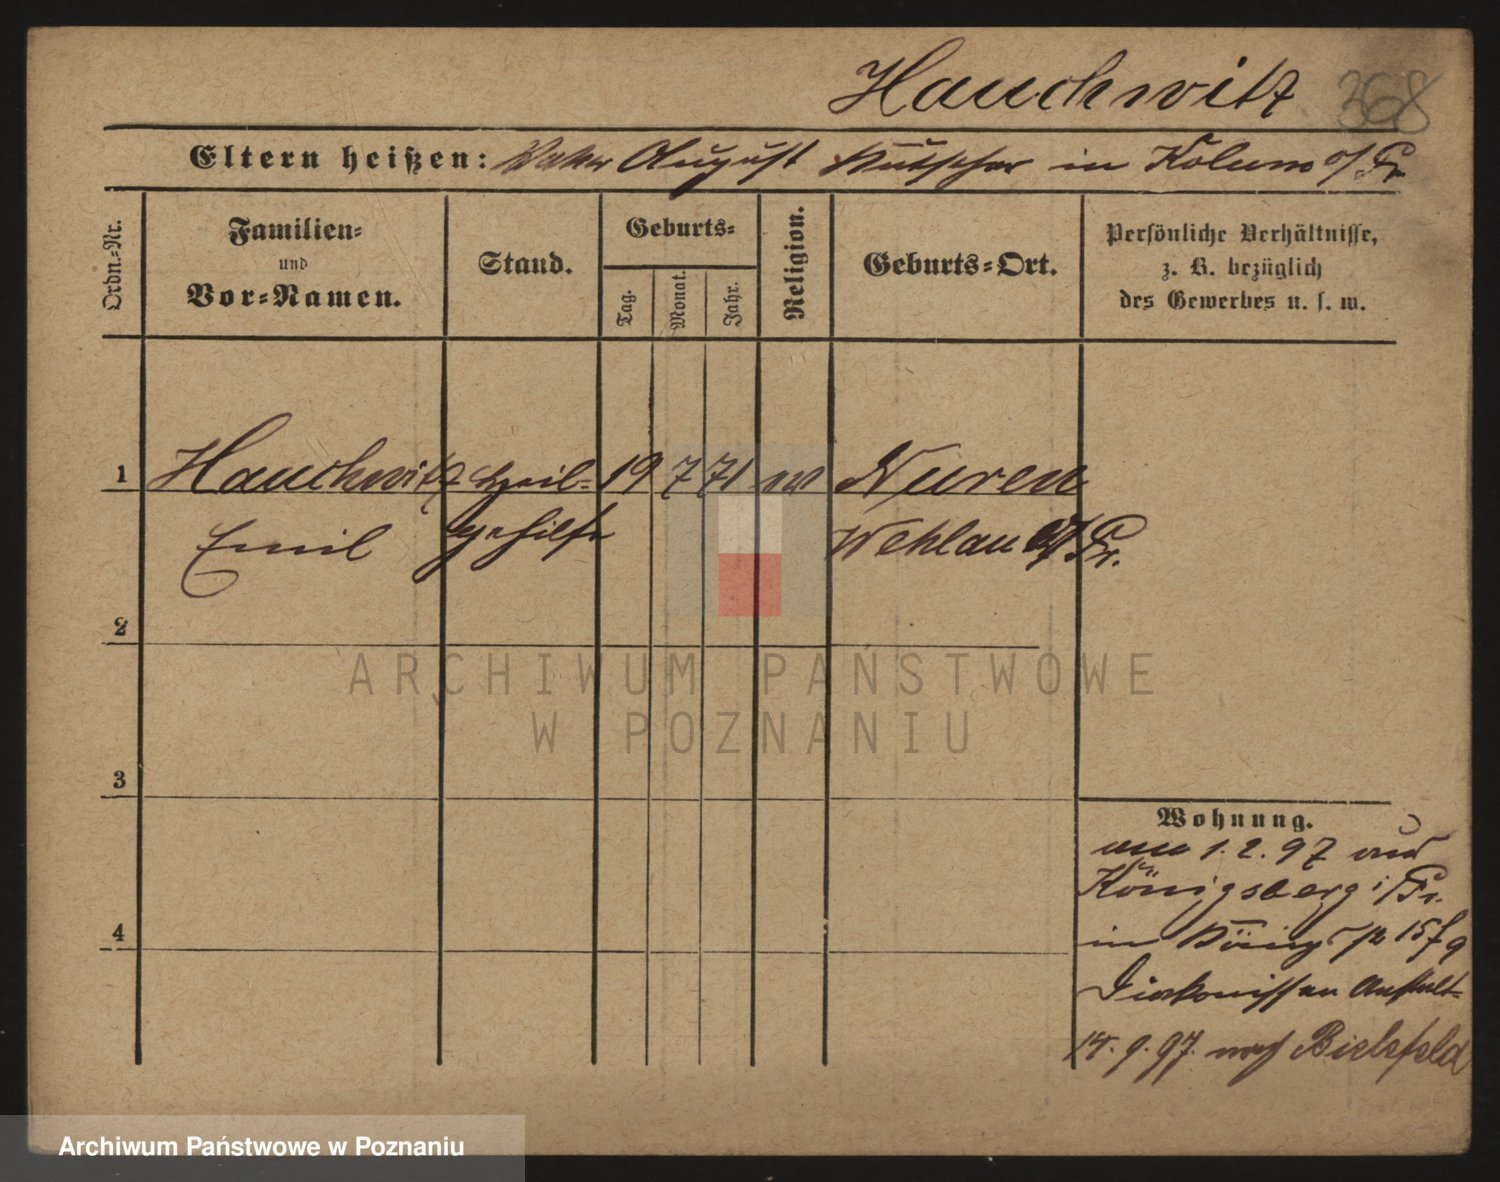 Hauchwitz 368
Eltern heißen: Vater August Kutscher in Kolum o/Pr
Ordn.-Nr.
Familien-
und
Vor-Namen.
Stand.
Geburts-
Tag.
Monat.
Jahr.
Religion.
Geburts-Ort.
Persönliche Verhältnisse,
z. B. bezüglich
des Gewerbes u. s. w.
1 Hauchwitz Heil- 19 7 71 ev Nuren
Emil gehilfe Wehlau O/Pr.
2
3
4
Wohnung.
1. 2. 97 aus
Königsberg i/Pr.
in 15
Diakonissen Anstalt
14. 9. 97. nach Bielefeld
ARCHIWUM PAŃSTWOWE
W POZNANIU
Archiwum Państwowe w Poznaniu